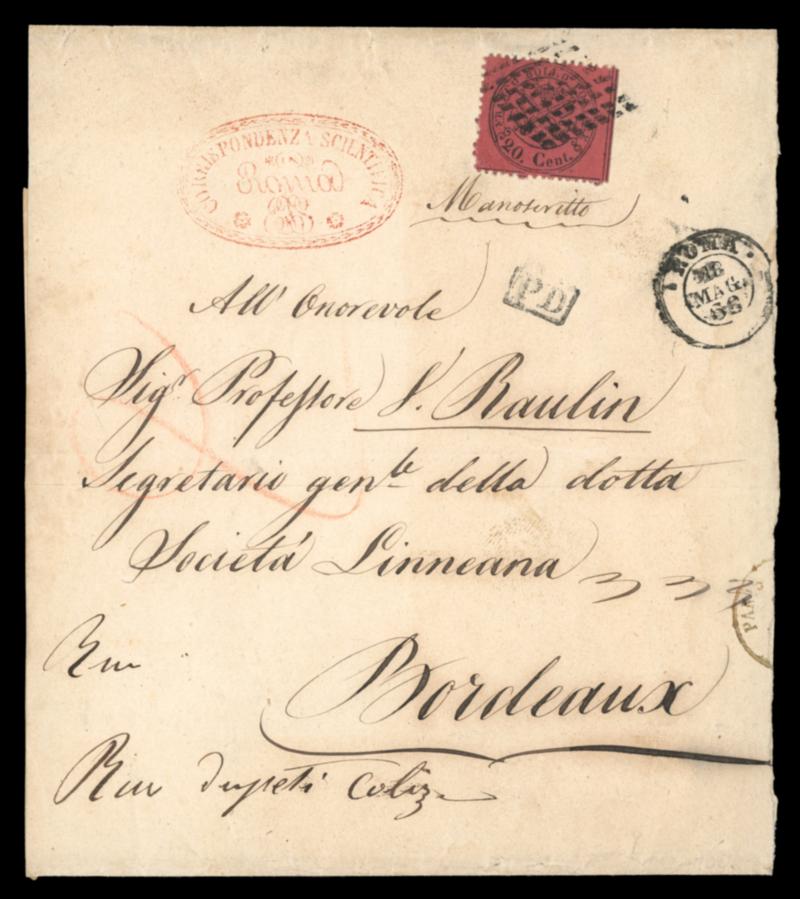 CORRISPONDENZA SCIENTIFICA
Roma
20. Cent.
Manoscritto
ROMA
MAG.
P.D
All' Onorevole
Sig.r Professore S. Raulin
Segretario gen.le della dotta
Società Linneana
Bordeaux
Rue
Rue